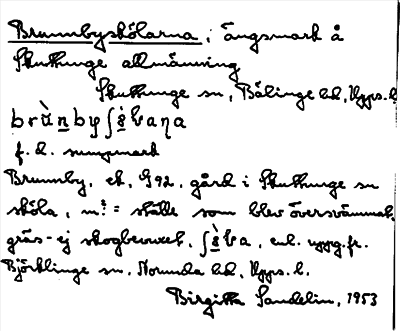 Brunnbyskölarna, ängsmark å
Skuttunge allmänning
Skuttunge sn, Bälinge hd, Upps. l.
f. d. sumpmark
Brunnby, ek, G92, gård i Skuttunge sn
sköla, n.? = ställe som blev översvämmat,
gräs- ej skogbevuxet, enl. uppg. fr.
Björklinge sn, Norunda hd, Upps. l.
Birgitta Sandelin, 1953